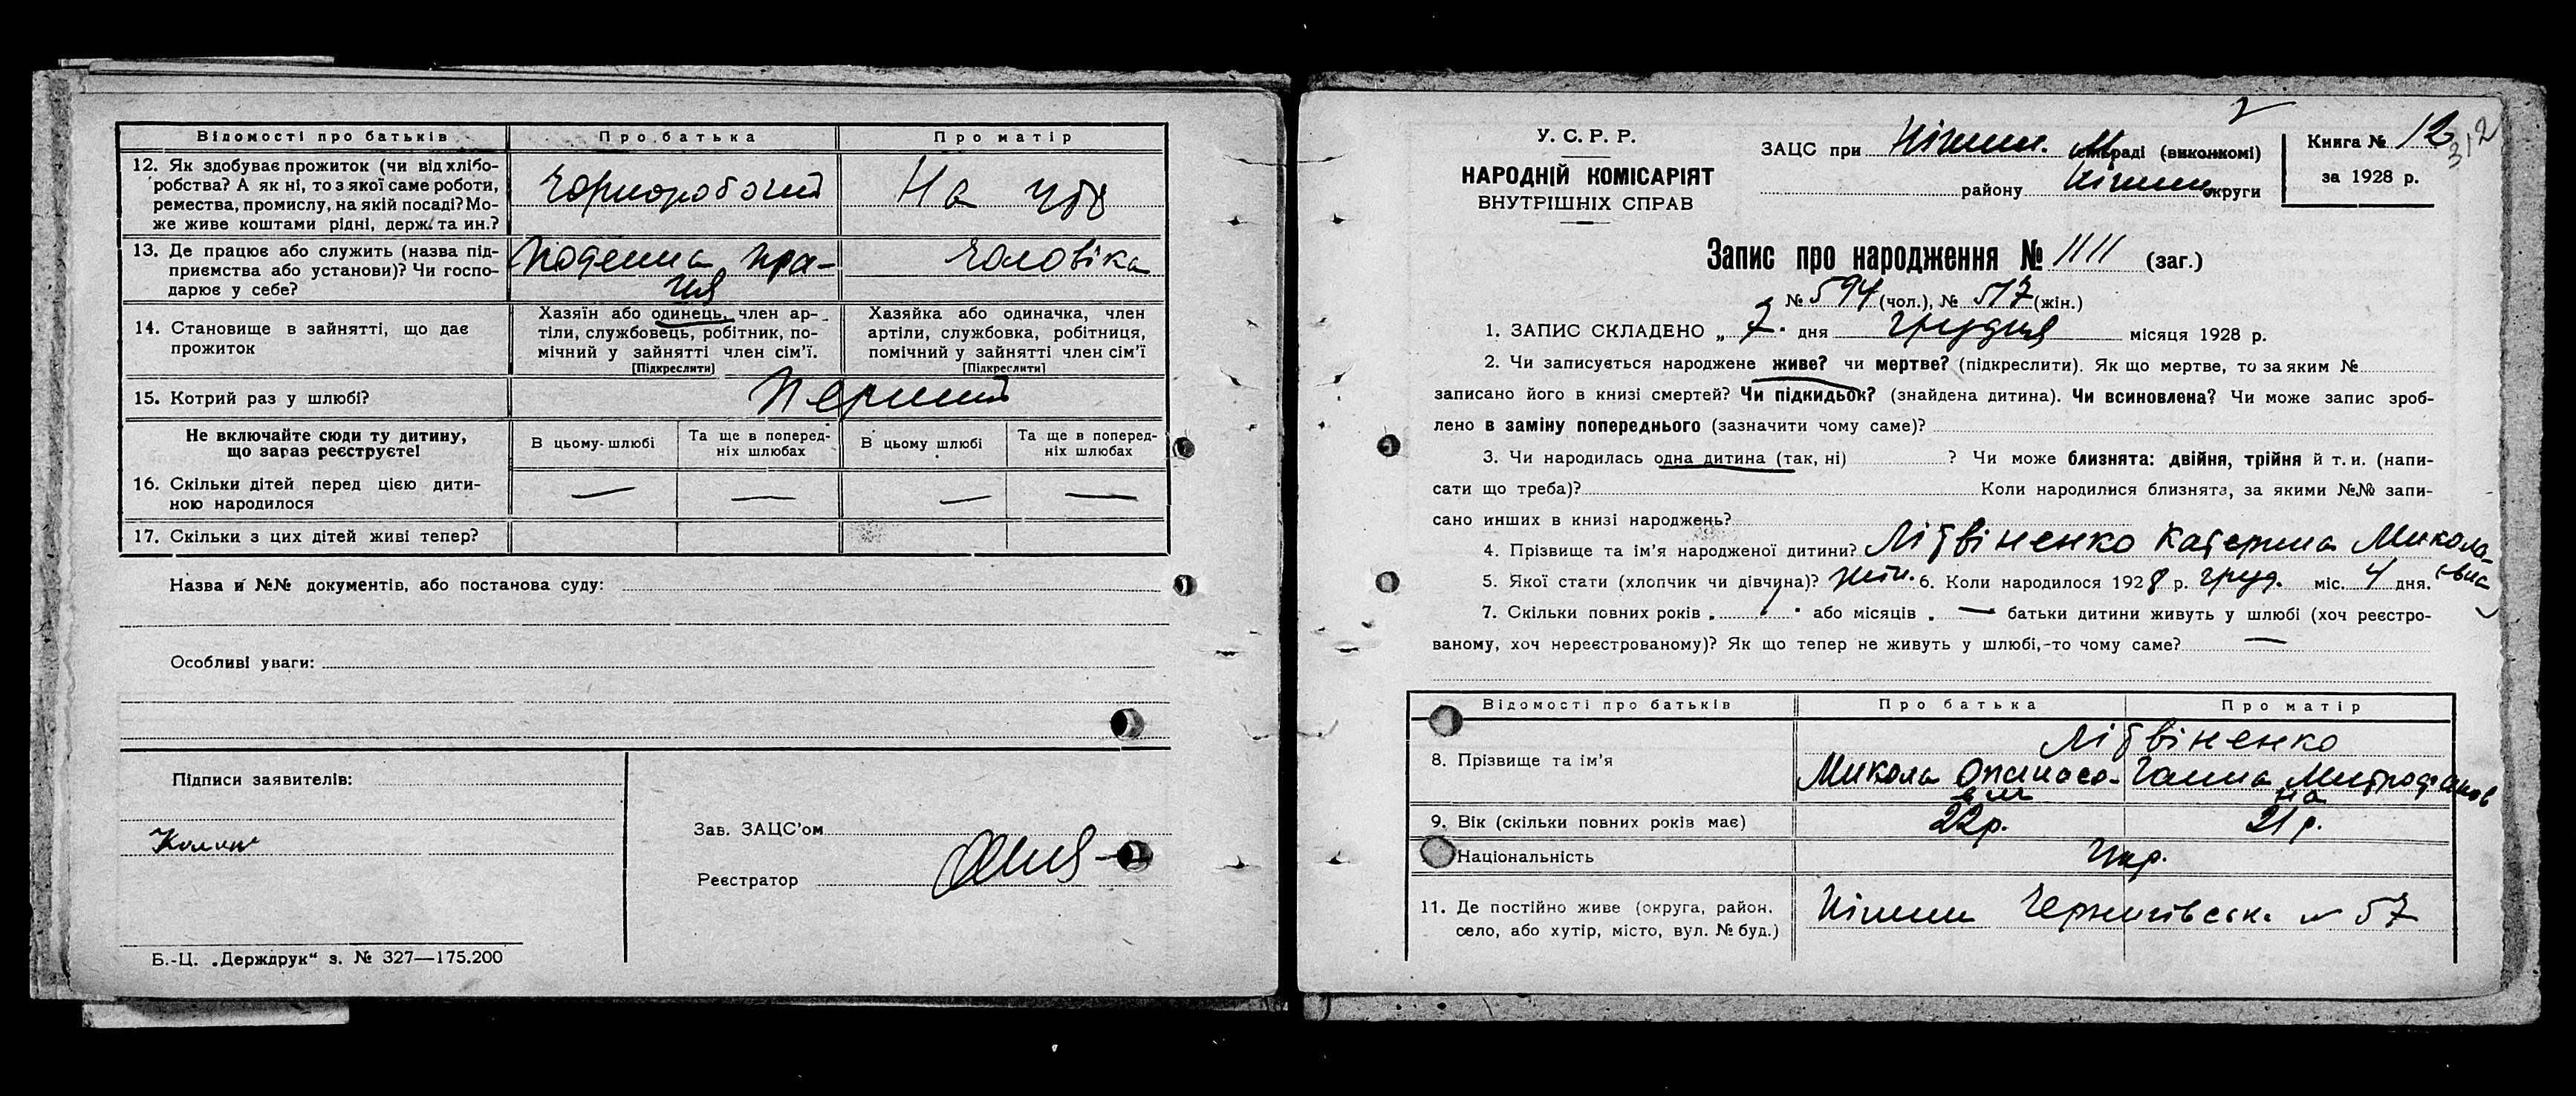 Відомості про батьків Про батька Про матір
12. Як здобуває прожиток (чи від хлібо-
робства? А як ні, то з якої саме роботи,
ремества, промислу, на якій посаді? Мо-
же живе коштами рідні, держ. та ин.?
Чорноробочий На утр
13. Де працює або служить (назва під-
приємства або установи)? Чи госпо-
дарює у себе?
Поденна пра-
ця
чоловіка
14. Становище в зайнятті, що дає
прожиток
Хазяїн або одинець, член ар-
тіли, службовець, робітник, по-
мічний у зайнятті член сім'ї.
[Підкреслити]
Хазяйка або одиначка, член
артіли, службовка, робітниця,
помічний у зайнятті член сім'ї
[Підкреслити]
15. Котрий раз у шлюбі? Перший
Не включайте сюди ту дитину,
що зараз реєструєте!
В цьому шлюбі
Та ще в поперед-
ніх шлюбах
В цьому шлюбі
Та ще в поперед-
ніх шлюбах
16. Скільки дітей перед цією дити-
ною народилося — — — —
17. Скільки з цих дітей живі тепер?
Назва й №№ документів, або постанова суду:
Особливі уваги:
Підписи заявителів:
Зав. ЗАЦС'ом
Реєстратор
Б.-Ц. „Держдрук“ з. № 327—175.200
У. С. Р. Р.
НАРОДНІЙ КОМІСАРІЯТ
ВНУТРІШНІХ СПРАВ
ЗАЦС при Ніжин. м раді (виконкомі)
району Ніжин округи
Книга № 12
за 1928 р.
312
Запис про народження № 1111 (заг.)
№ 594 (чол.), № 517 (жін.)
1. ЗАПИС СКЛАДЕНО „ 7. дня грудня місяця 1928 р.
2. Чи записується народжене живе? чи мертве? (підкреслити). Як що мертве, то за яким №
записано його в книзі смертей? Чи підкидьок? (знайдена дитина). Чи всиновлена? Чи може запис зроб-
лено в заміну попереднього (зазначити чому саме)?
3. Чи народилась одна дитина (так, ні) ? Чи може близнята: двійня, трійня й т. и. (напи-
сати що треба)? Коли народилися близнята, за якими №№ запи-
сано инших в книзі народжень?
4. Прізвище та ім'я народженої дитини? Літвіненко Катерина Микола-
ївна
5. Якої стати (хлопчик чи дівчина)? жін. 6. Коли народилося 1928 р. груд. міс. 4 дня.
7. Скільки повних років 1 або місяців — батьки дитини живуть у шлюбі (хоч реєстро-
ваному, хоч нереєстрованому)? Як що тепер не живуть у шлюбі,-то чому саме? —
Відомості про батьків Про батька Про матір
8. Прізвище та ім'я
Літвіненко
Микола Опанасо-
вич
Ганна Митрофанов
на
9. Вік (скільки повних років має) 22р. 21р.
Національність Укр.
11. Де постійно живе (округа, район,
село, або хутір, місто, вул. № буд.)
Ніжин Чернигівськ. № 57